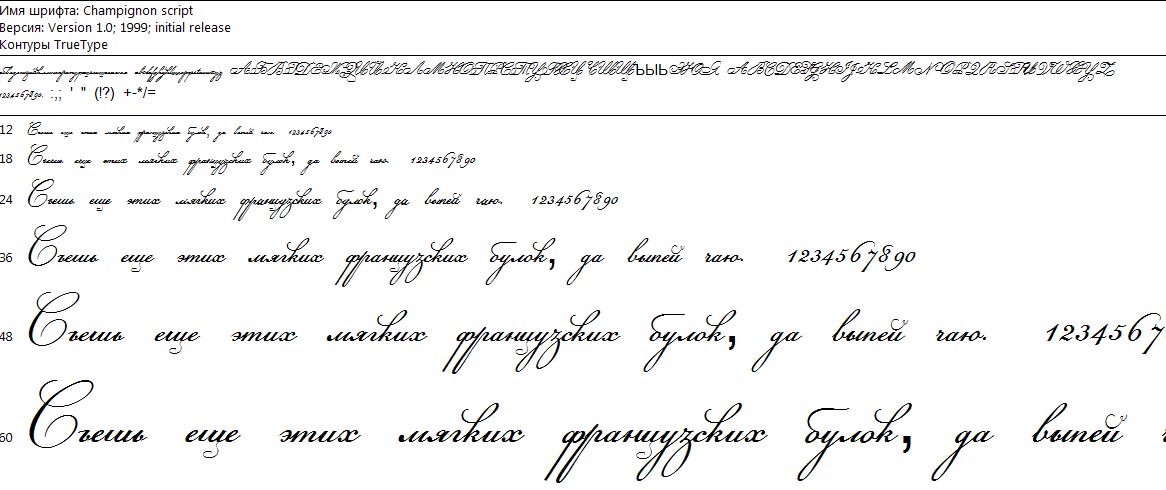 Имя шрифта: Champignon script
Версия: Version 1.0; 1999; initial release
Контуры TrueType
АБВГДЕЖЗИЙКЛМНОПРСТУФХЦЧШЩЪЫЬЭЮЯ ABCDEFGHIJKLMNOPQRSTUVWXYZ
1234567890. :,; ' " (!?) +-*/=
12 Съешь еще этих мягких французских булок, да выпей чаю. 1234567890
18 Съешь еще этих мягких французских булок, да выпей чаю. 1234567890
24 Съешь еще этих мягких французских булок, да выпей чаю. 1234567890
36 Съешь еще этих мягких французских булок, да выпей чаю. 1234567890
48 Съешь еще этих мягких французских булок, да выпей чаю. 1234567
60 Съешь еще этих мягких французских булок, да выпей